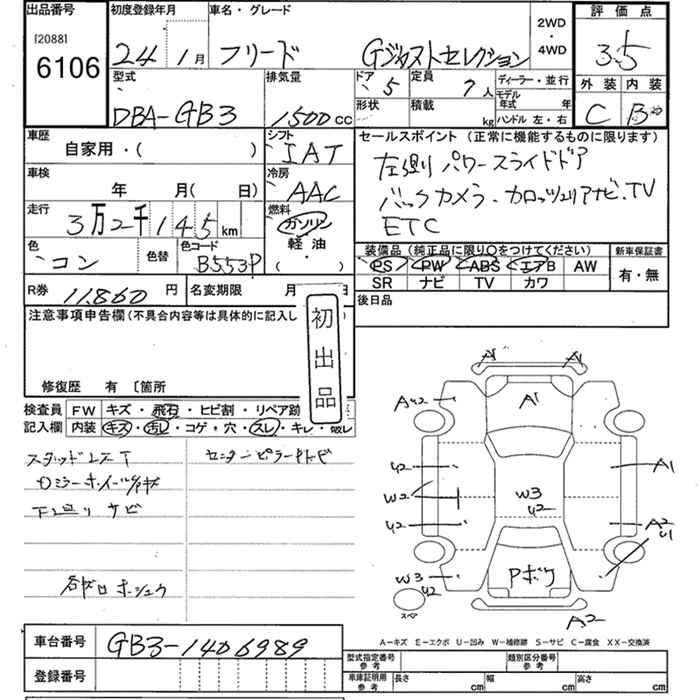 出品番号 初度登録年月 車名・グレード 2WD・4WD 評価点
[2088]
6106 24年1月 フリード Gジャストセレクション 3.5
型式 排気量 ドア 5 定員 7人 ディーラー・並行 外装 内装
モデル年式 年
DBA-GB3 1500cc 形状 積載 kg ハンドル 左・右 C B
車歴 シフト セールスポイント (正常に機能するものに限ります)
自家用・( ) IAT
車検 冷房
年 月( 日) AAC
左側り パワースライドドア
バックカメラ・カロッツェリアナビ・TV
ETC
走行 燃料
3万2千145km ガソリン
軽油・( )
色 色替 色コード
コン B553P
装備品 (純正品に限り○をつけてください) 新車保証書
PS PW ABS エアB AW 有・無
SR ナビ TV カワ
R券 11,860円 名変期限 月 日
後日品
注意事項申告欄(不具合内容等は具体的に記入し
初出品
修復歴 有 〔箇所
検査員 FW キズ・飛石・ヒビ割・リペア跡
記入欄 内装 キズ・汚レ・コゲ・穴・スレ・キレ・破レ
スタッドレスT センターピラー
ミラーホイールキズ
ナビ
ホシュウ
A1 A1
A1
AU2
U2 A1
W2
W3
U2
U2 A2
U1
W3
U2 Pボケ
スペア
A2
A-キズ E-エクボ U-凹み W-補修跡 S-サビ C-腐食 XX-交換済
車台番号 GB3-1406989
登録番号
型式指定番号 参考 類別区分番号 参考
車庫証明用 参考 長さ cm 幅 cm 高さ cm